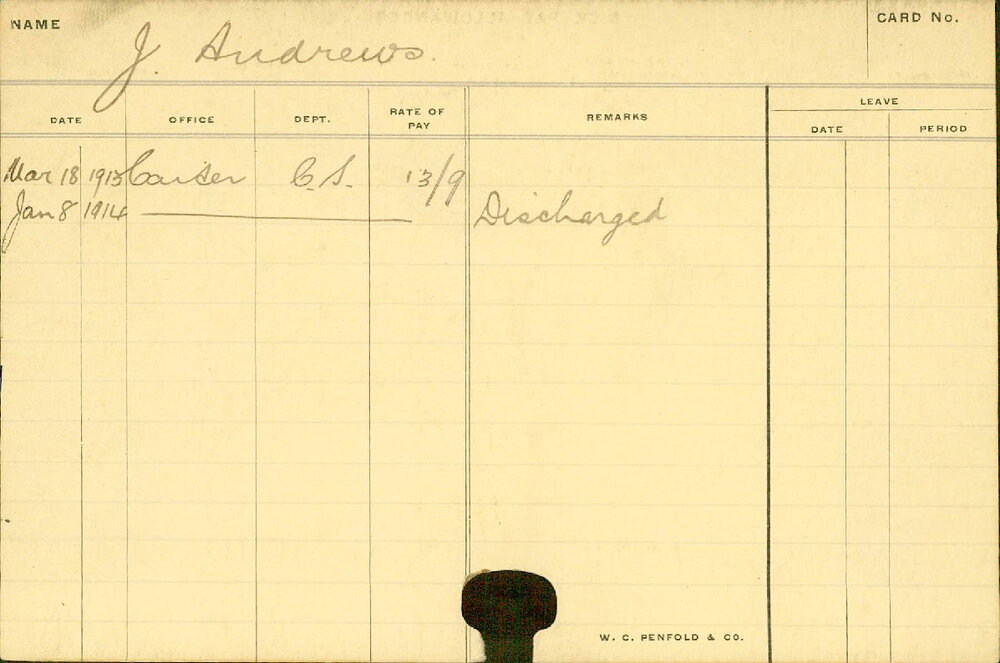 NAME J. Andrews. CARD No.
DATE OFFICE DEPT. RATE OF PAY REMARKS LEAVE
DATE PERIOD
Mar 18 1913 Carter C.S. 13/9
Jan 8 1914 Discharged
W. C. PENFOLD & CO.